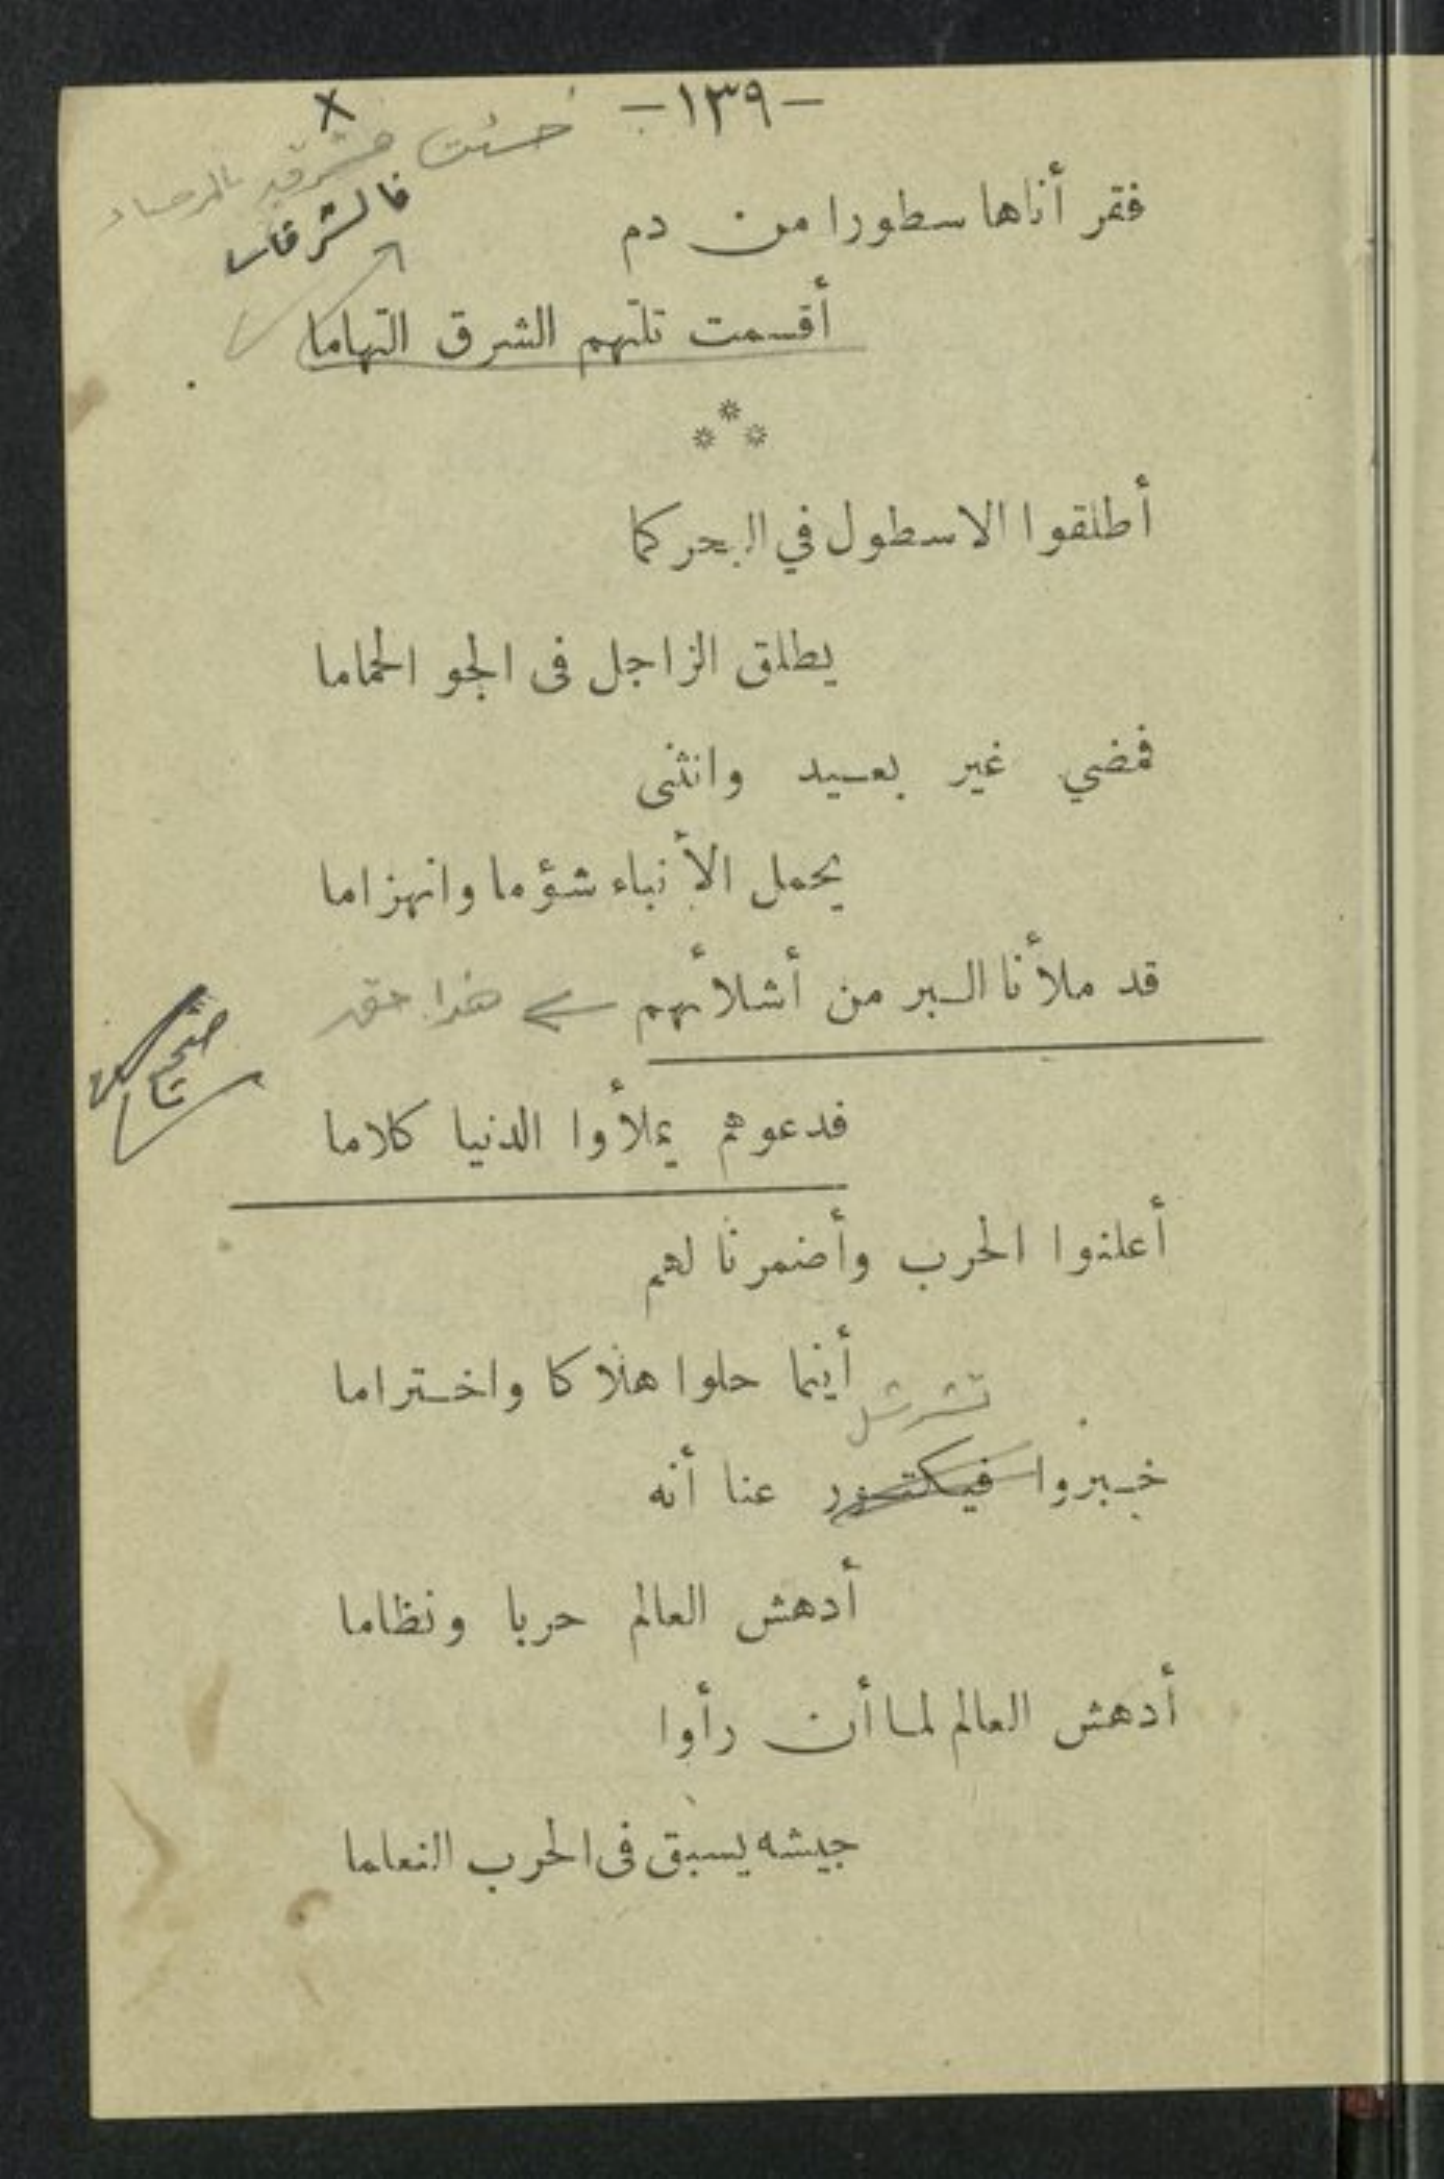 -١٣٩-
خسئت بالمرصاد
فالشرق
فقر أناها سطورا من دم
أقسمت تلتهم الشرق التهاما
أطلقوا الاسطول في البحر كما
يطلق الزاجل فى الجو الحماما
فمضي غير بعيد وانثنى
يحمل الأنباء شؤما وانهزاما
قد ملأنا البر من أشلأئهم هذا حق
فدعوهم يملأوا الدنيا كلاما
أعلنوا الحرب وأضمرنا لهم
أينما حلوا هلاكا واختراما
تشرشل
خبروا فيكتور عنا أنه
أدهش العالم حربا ونظاما
أدهش العالم لما أن رأوا
جيشه يسبق فى الحرب النعاما